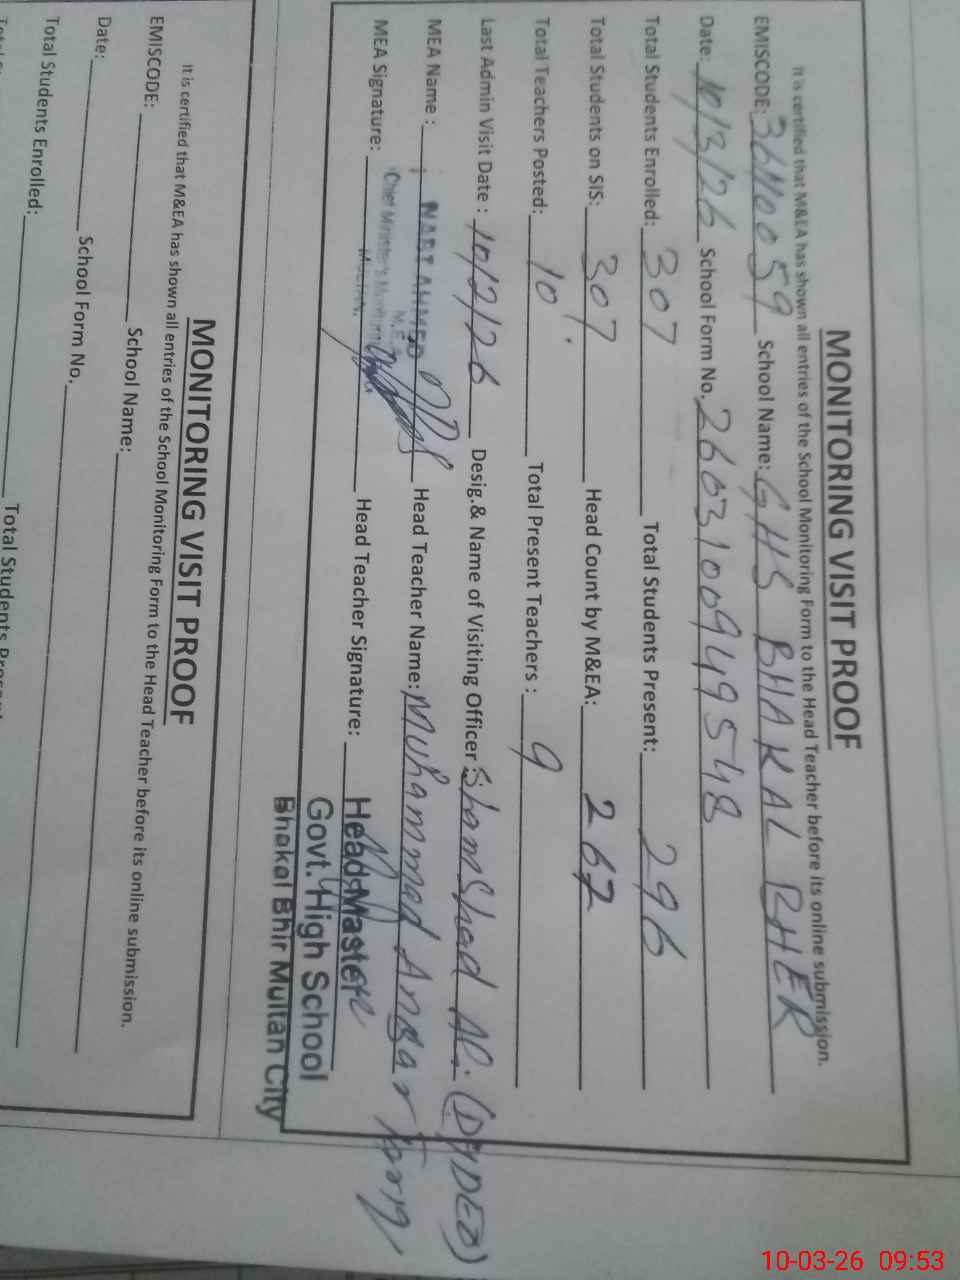 MONITORING VISIT PROOF
It is certified that M&EA has shown all entries of the School Monitoring Form to the Head Teacher before its online submission.
EMISCODE: 36110059 School Name: GHS BHAKAL BHER
Date: 10/3/26 School Form No. 2603100949548
Total Students Enrolled: 307 Total Students Present: 296
Total Students on SIS: 307 Head Count by M&EA: 267
Total Teachers Posted: 10 Total Present Teachers : 9
Last Admin Visit Date : 10/2/26 Desig.& Name of Visiting Officer: Shamshad Ali (DyDEO)
MEA Name : AHMED Head Teacher Name: Muhammad Ansar
MEA Signature: Chief Minister's Head Teacher Signature:
Head Master
Govt. High School
Bhakal Bhir Multan City
MONITORING VISIT PROOF
It is certified that M&EA has shown all entries of the School Monitoring Form to the Head Teacher before its online submission.
EMISCODE: School Name:
Date: School Form No.
Total Students Enrolled: Total Students Present
10-03-26 09:53